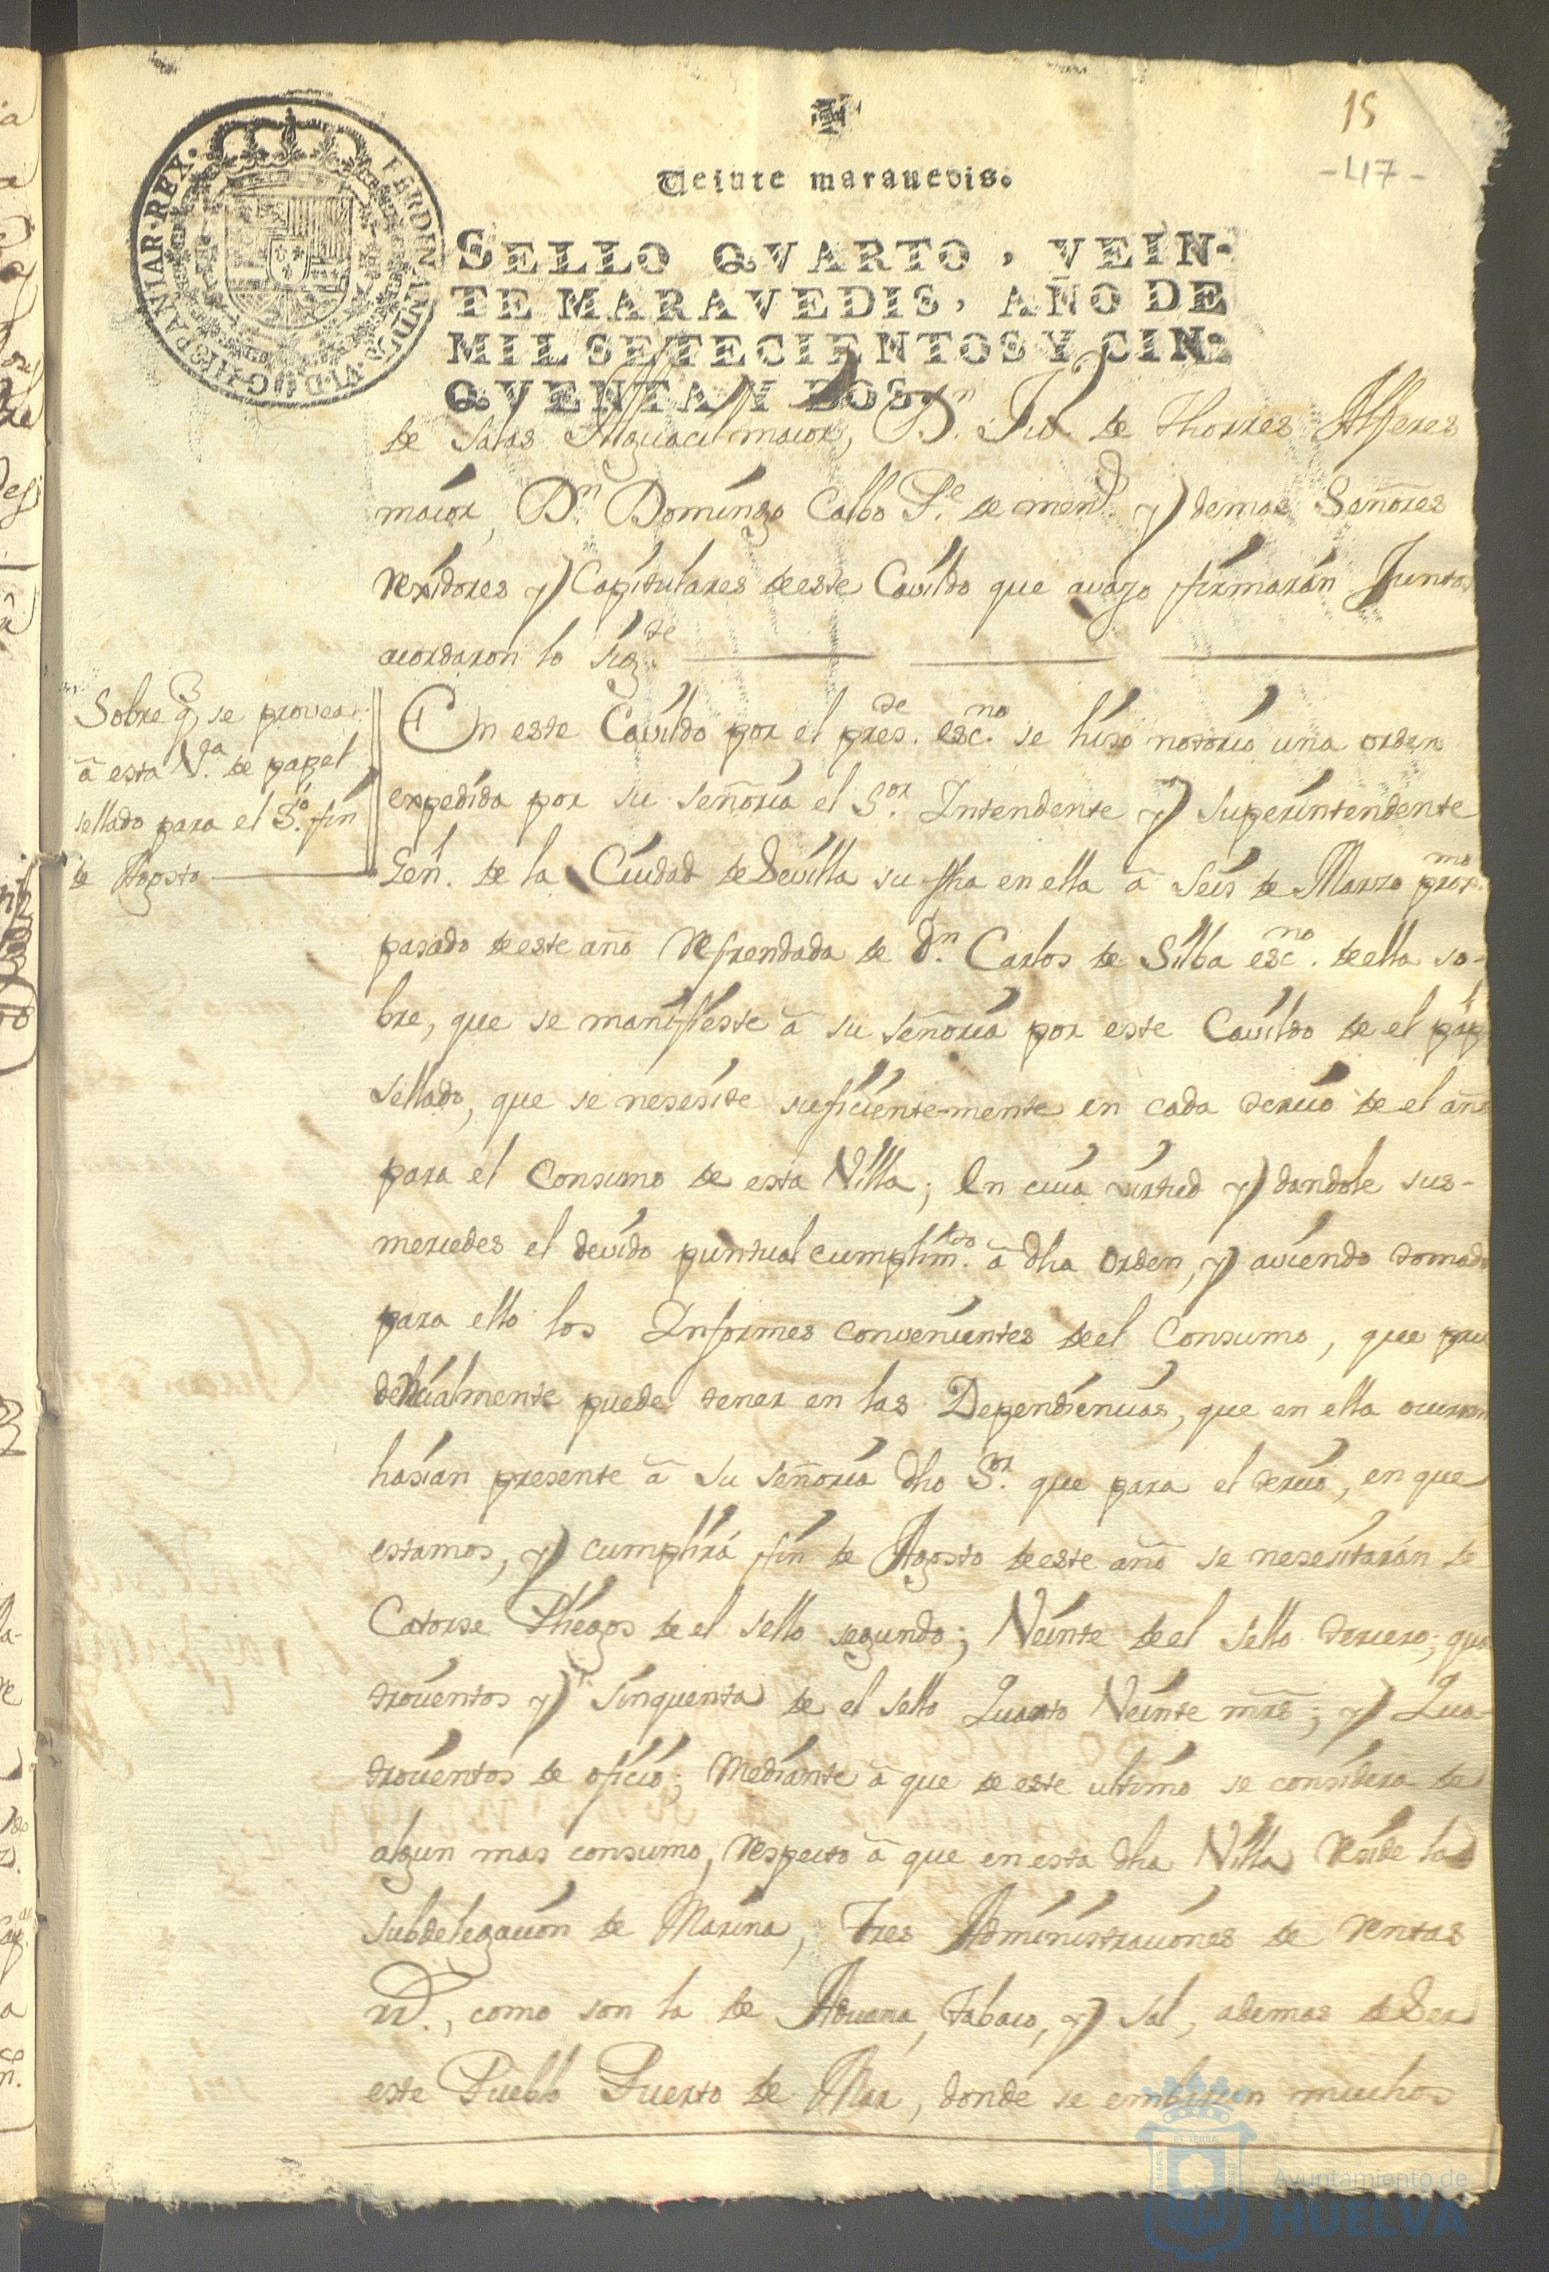 15
-47-
Veinte marauedis.
FERDINANDUS·VI·D·G·HISPANIAR·REX·
SELLO QVARTO, VEIN-
TE MARAVEDIS, AÑO DE
MIL SETECIENTOS Y CIN-
QVENTA Y DOS.
de Salas Alguacil maior, Dn. Juo. de Thorres Alferes
maior, Dn. Domingo Calbo Pe. de mend. y demas Señores
Rexidores y Capitulares deeste Cavildo que avajo firmarán Juntos
acordaron lo sigte.
Sobre q se provea
â esta Va. de papel
sellado para el 3o. fin
de Agosto
En este Cavildo por el preste. escno. se hiso notorio una orden
expedida por su señoria el Sor. Intendente y superintendente
Gen. de la Ciudad de Sevilla su fha en ella â seis de Marzo proxmo.
pasado deeste año Refrendada de Dn. Carlos de Silba escno. deella so-
bre, que se manifieste â su señoria por este Cavildo de el papl
sellado, que se nesesite suficiente-mente en cada tercio de el año
para el Consumo de esta Villa; En cuia virtud y dandole sus-
mercedes el devido puntual cumplimto. â dha Orden, y aviendo tomado
para ello los Informes convenientes deel Consumo, que pru
dencialmente puede tener en las Dependiencias, que en ella ocurren
hasian presente â su señoria dho Sor. que para el tercio, en que
estamos, y cumplirá fin de Agosto deeste año se nesesitarán de
Catorse Pliegos deel sello segundo; Veinte deel sello tercero; qua
trocientos y sinquenta de el sello Quarto Veinte mrs; y Qua-
trocientos de oficio; Mediante â que deeste ultimo se considera de
algun mas consumo, Respecto â que en esta dha Villa Reside la
subdelegacion de Marina, Tres Administraciones de Rentas
Rs., como son la de Aduana, tabaco, y sal, ademas de Ser
este Pueblo Puerto de Mar, donde se embarcan muchos
Ayuntamiento de
HUELVA